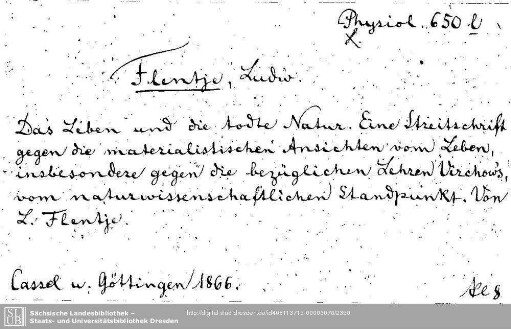 Physiol. 650 l
Flentje, Ludw.
Das Leben und die todte Natur. Eine Streitschrift
gegen die materialistischen Ansichten vom Leben,
insbesondere gegen die bezüglichen Lehren Virchow's,
vom naturwissenschaftlichen Standpunkt. Von
L. Flentje.
Cassel u. Göttingen 1866.
8
SLUB
Sächsische Landesbibliothek –
Staats- und Universitätsbibliothek Dresden